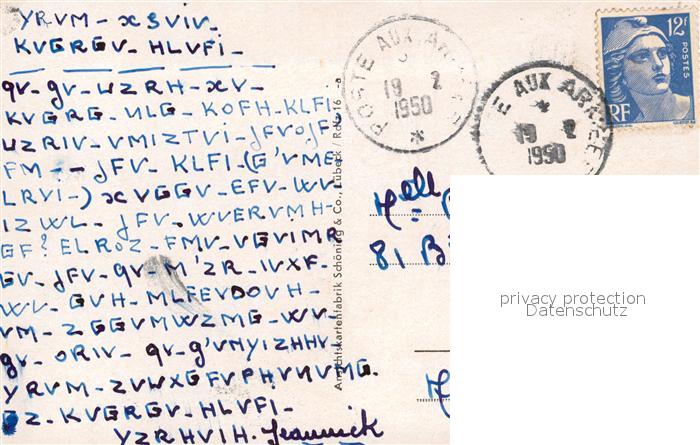 YRVM - XSVIV -
KVGRGV - HLVFI -
QV - GV - UZRH - XV -
KVGRG - NLG - KOFH - KLFI
UZRIV - VMIZTVI - JFVOJF
FM - - JFV - KLFI - (G'VME
LRVI -) XVGGV - EFV - WV
IZWL - JFV - WVERVMH -
GF? ELROZ - FMV - VGVIMR
GV - JFV - QV - M'ZR - IVXF -
WV - GVH - MLFEVOOVH -
VM - ZGGVMWZMG - WV -
GV - ORIV - QV - G'VNYIZHHV -
YRVM - ZUVXGFVFHVNVMG.
GZ. KVGRGV - HLVFI -
YZRHVIH. Jeannick
Ansichtskartenfabrik Schöning & Co., Lübeck /
POSTE AUX ARMÉES
19 2
1950
E AUX ARMÉES
19 2
1950
12F
POSTES
RF
Melle
81 B
privacy protection
Datenschutz